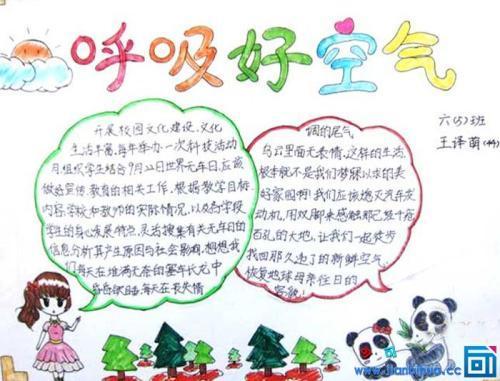 呼吸好空气
六(5)班
王泽萌
开展校园文化建设，文化
生活丰富，每年举办一次科技活动
月，组织学生结合9月22日世界无车日，应该
做些宣传、教育的相关工作。根据教学目标、
内容、学校和教师的实际情况，以及各学段
学生的身心发展特点，灵活搜集有关无车日的
信息，分析其产生原因与社会影响，想想我
们每天在堆满无奈的塞车长龙中
每天在丧失情
烟的尾气
乌云里面无表情，这样的生活
根本就不是我们梦寐以求的美
好家园啊！我们应该熄灭汽车发
动机，用双脚来感触那已经千疮
百孔的大地，让我们一起徒步
找回那久违了的新鲜空气，
恢复地球母亲往日的
容貌！
www.jianbihua.cc